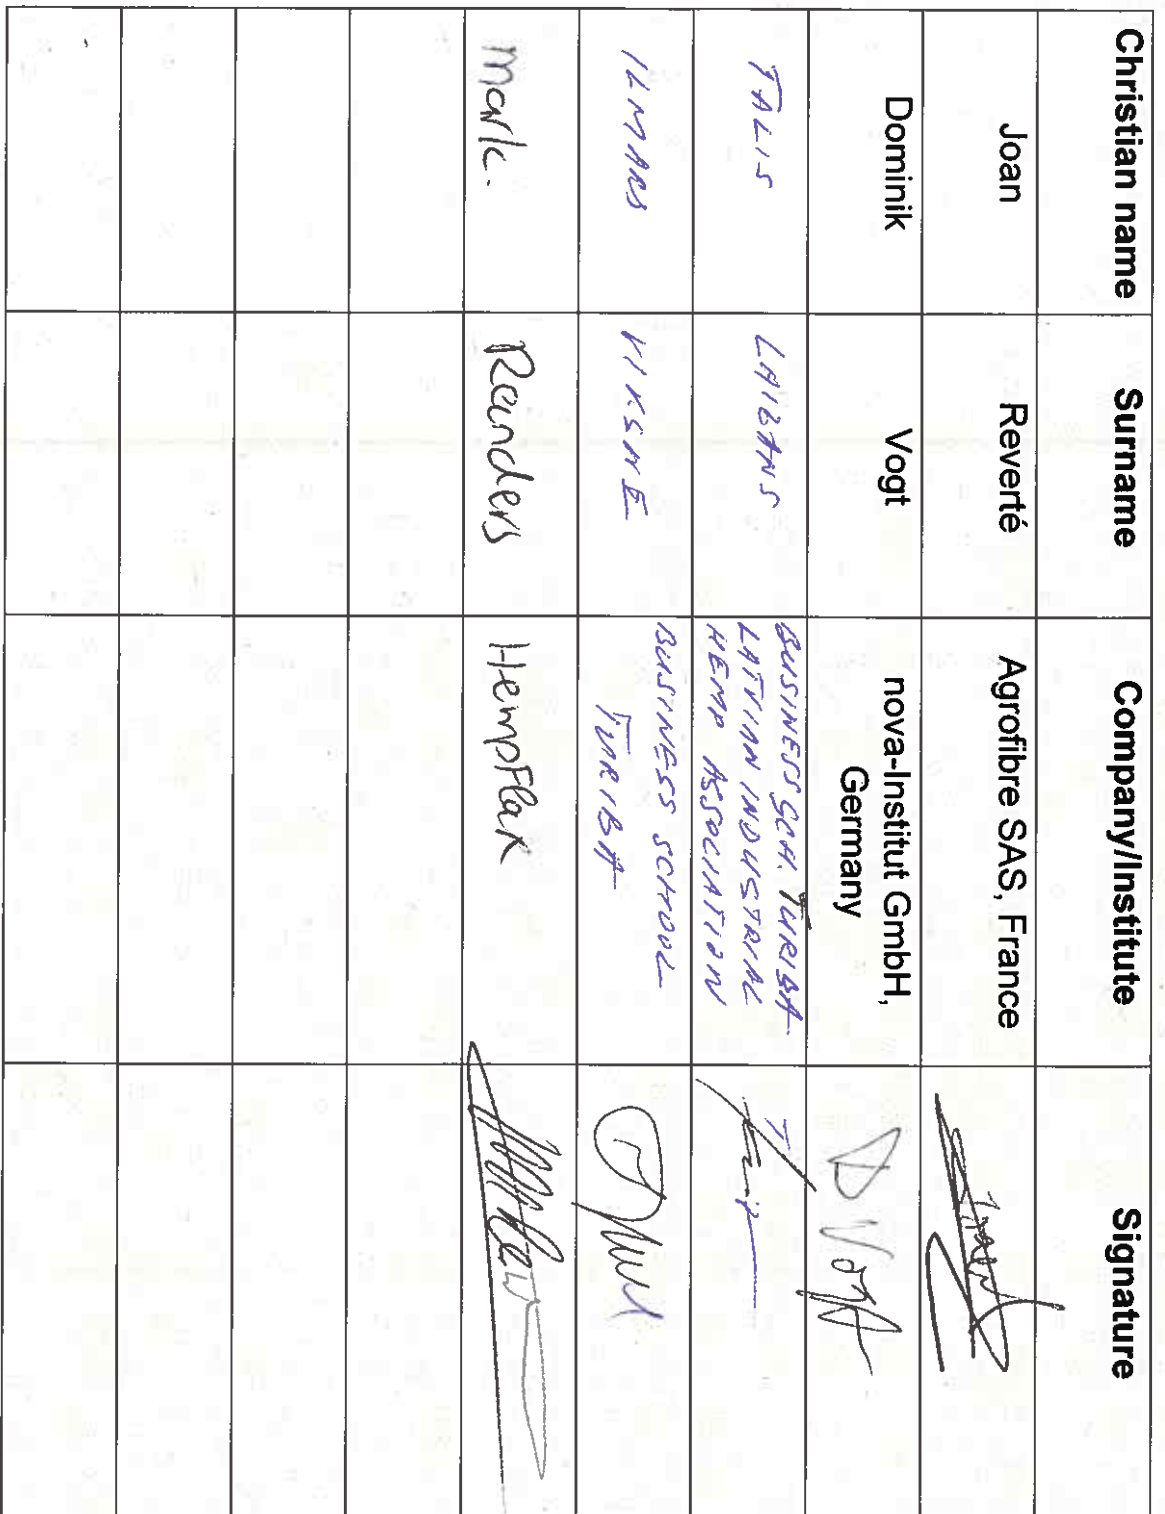 Christian name Surname Company/Institute Signature
Joan Reverté Agrofibre SAS, France
Dominik Vogt nova-Institut GmbH,
Germany D Vogt
TALIS LAIBANS BUSINESS SCH TURIBA
LATVIAN INDUSTRIAL
HEMP ASSOCIATION
ILMARS VIKSNE BUSINESS SCHOOL
TURIBA
Mark. Reinders HempFlax